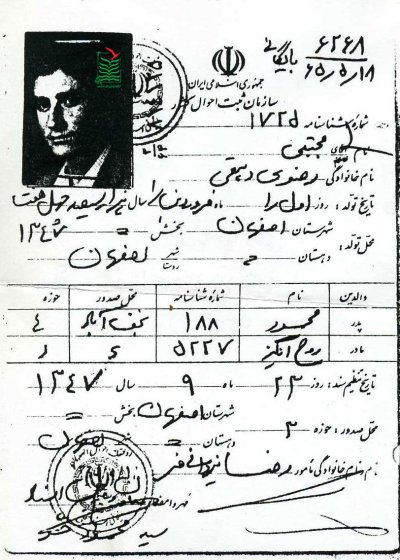 ۶۲۶۸
بایگانی
۶۵/۵/۱۸
جمهوری اسلامی ایران
سازمان ثبت احوال کشور
شماره شناسنامه ۱۷۲۵
نام آقای مجتبی
نام خانوادگی رضوی
تاریخ تولد: روز اول ماه سال هزار سیصد چهل هفت
۱۳۴۷
محل تولد: شهرستان اصفهان بخش =
دهستان = شهر روستا اصفهان
والدین نام شماره شناسنامه محل صدور حوزه
پدر محمود ۱۸۸ نجف آباد ۴
مادر روح انگیز ۵۲۲۷
تاریخ تنظیم سند: روز ۲۳ ماه ۹ سال ۱۳۴۷
محل صدور: حوزه ۳ شهرستان اصفهان بخش =
دهستان = شهر اصفهان
نام و نام خانوادگی مأمور